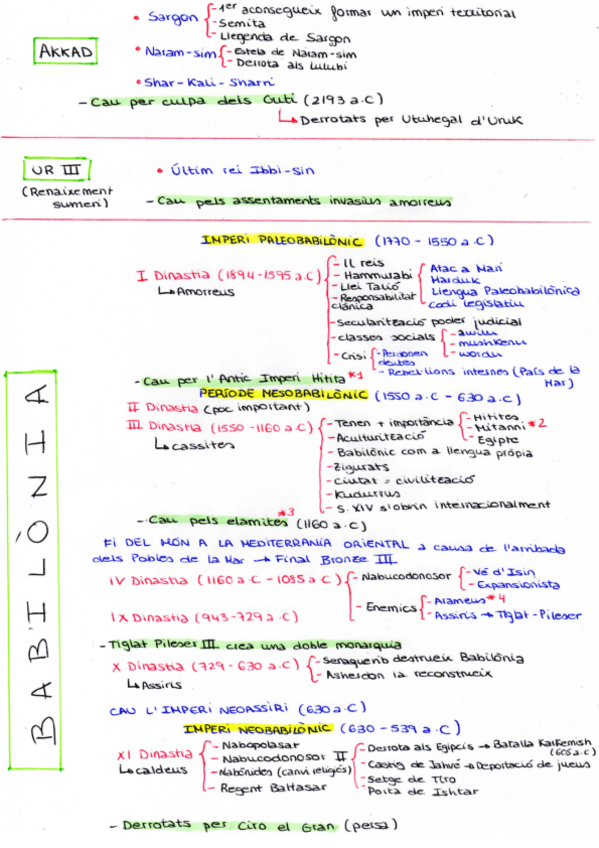 AKKAD
• Sargon
- 1er aconsegueix formar un imperi territorial
- Semita
- Llegenda de Sargon
• Naram-sim
- Estela de Naram-sim
- Derrota als Lulubi
• Shar-Kali-Sharri
- Cau per culpa dels Guti (2193 a.C)
↳ Derrotats per Utuhegal d'Uruk
UR III
(Renaixement sumeri)
• Últim rei Ibbi-sin
- Cau pels assentaments invasius amorreus
BABILÒNIA
IMPERI PALEOBABILÒNIC (1770 - 1550 a.C)
I Dinastia (1894-1595 a.C)
↳ Amorreus
- 11 reis
- Hammurabi
Atac a Mari
Marduk
Llengua Paleobabilònica
Codi legislatiu
- Llei Talió
- Responsabilitat clànica
- Secularització poder judicial
- classes socials
- awilu
- mushkenu
- wordu
- Crisi
- Perdonen deutes
- Rebel·lions internes (País de la Mar)
- Cau per l'Antic Imperi Hitita *1
PERÍODE MESOBABILÒNIC (1550 a.C - 630 a.C)
II Dinastia (poc important)
III Dinastia (1550 - 1160 a.C)
↳ cassites
- Tenen + importància
- Hitites
- Mitanni *2
- Egipte
- Aculturització
- Babilònic com a llengua pròpia
- Zigurats
- Ciutat = civilització
- Kudurrus
- S. XIV s'obrin internacionalment
- Cau pels elamites *3 (1160 a.C)
FI DEL MÓN A LA MEDITERRÀNIA ORIENTAL a causa de l'arribada
dels Pobles de la Mar → Final Bronze III
IV Dinastia (1160 a.C - 1085 a.C)
- Nabucodonosor
- Vé d'Isin
- Expansionista
- Enemics
- Arameus *4
- Assiris → Tiglat-Pileser
IX Dinastia (943-729 a.C)
- Tiglat Pileser III crea una doble monarquia
X Dinastia (729 - 630 a.C)
↳ Assiris
- Senaquerib destrueix Babilònia
- Asherdon la reconstrueix
CAU L'IMPERI NEOASSIRI (630 a.C)
IMPERI NEOBABILÒNIC (630 - 539 a.C)
XI Dinastia
↳ caldeus
- Nabopolasar
- Nabucodonosor II
- Derrota als Egipcis → Batalla Karkemish (605 a.C)
- Castig de Jahvé → Deportació de jueus
- Setge de Tiro
- Porta de Ishtar
- Nabònides (canvi religiós)
- Regent Baltasar
- Derrotats per Ciro el Gran (persa)